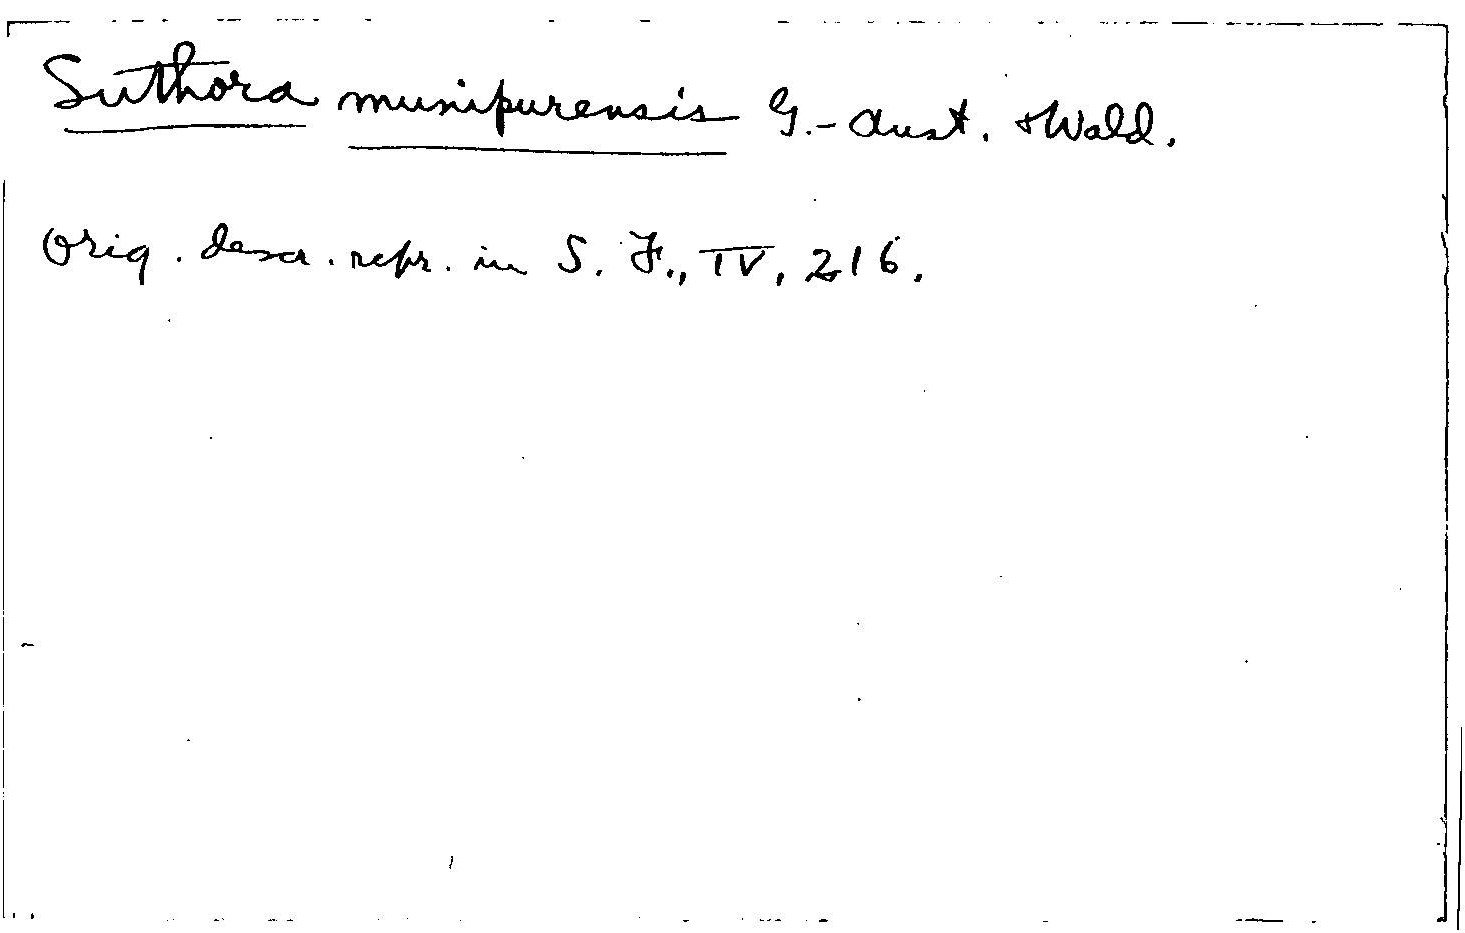 Suthora munipurensis G.-Aust. & Wald.
Orig. descr. repr. in S. F., IV, 216.